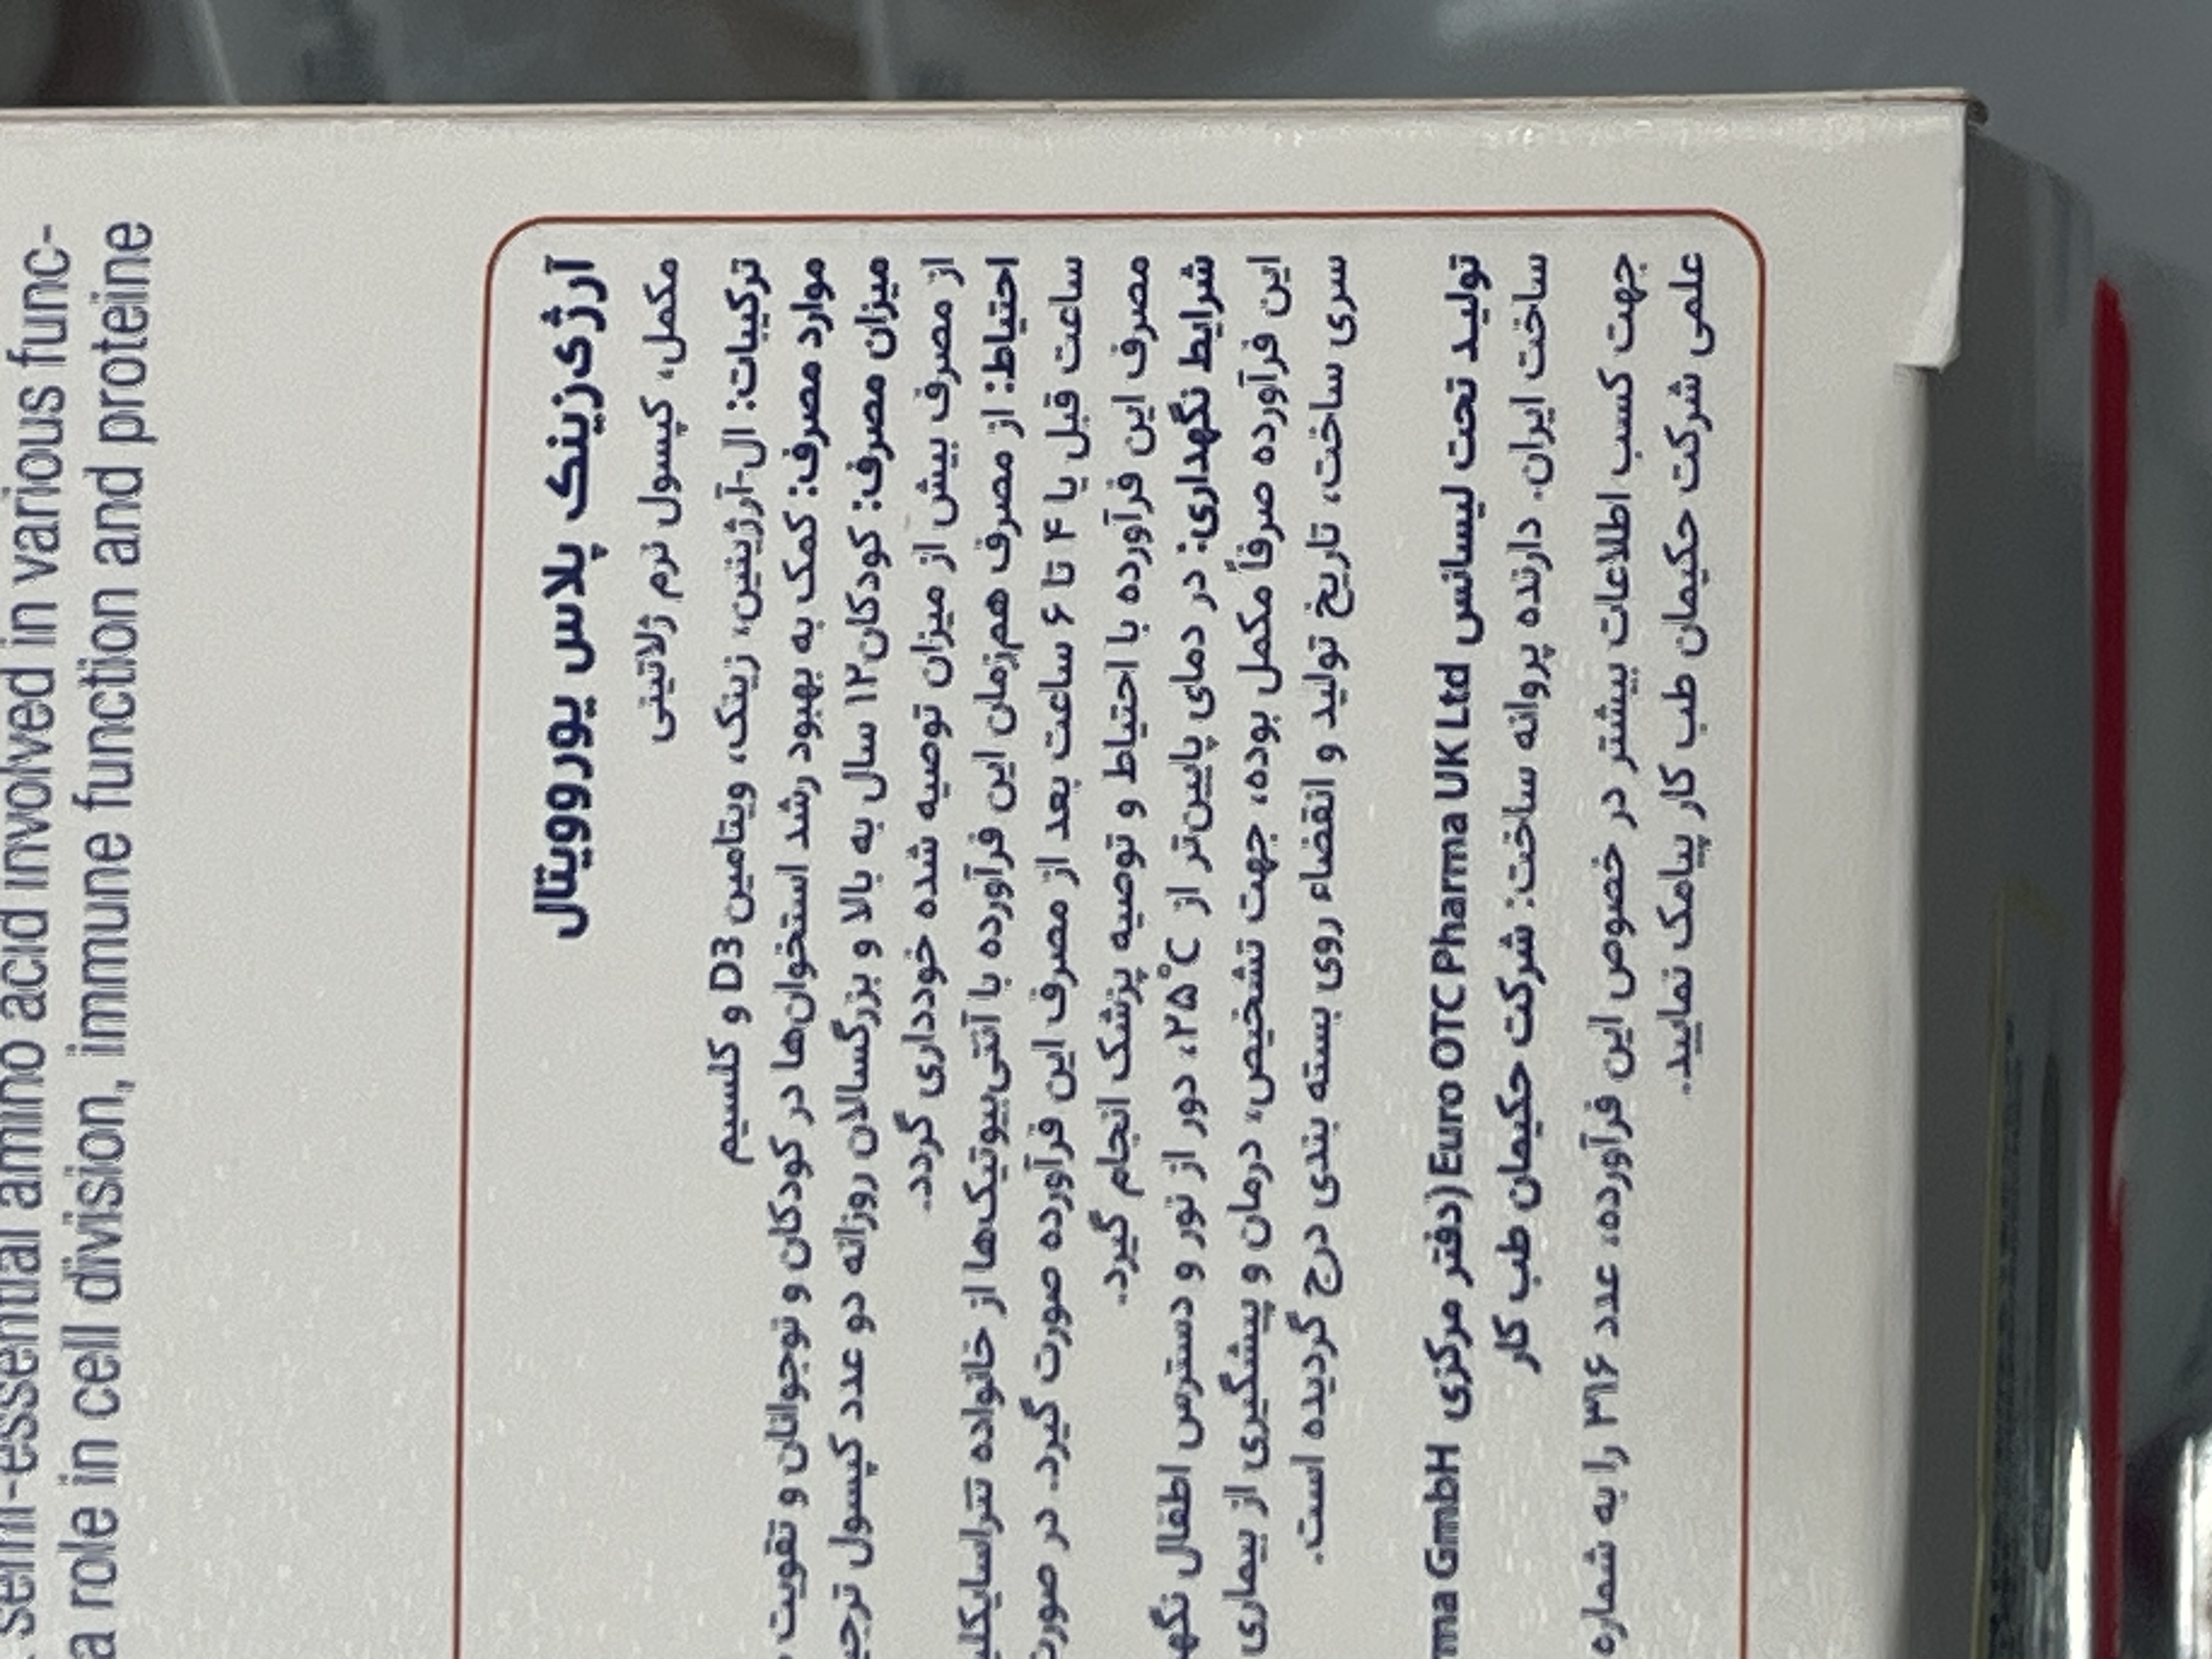 semi-essential amino acid involved in various func-
a role in cell division, immune function and proteine
آرژی‌زینک پلاس یوروویتال
مکمل، کپسول نرم ژلاتینی
ترکیبات: ال-آرژینین، زینک، ویتامین D3 و کلسیم
موارد مصرف: کمک به بهبود رشد استخوان‌ها در کودکان و نوجوانان و تقویت
میزان مصرف: کودکان ۱۲ سال به بالا و بزرگسالان روزانه دو عدد کپسول
از مصرف بیش از میزان توصیه شده خودداری گردد.
احتیاط: از مصرف هم‌زمان این فرآورده با آنتی‌بیوتیک‌ها از خانواده
ساعت قبل یا ۴ تا ۶ ساعت بعد از مصرف این فرآورده صورت گیرد. در
مصرف این فرآورده با احتیاط و توصیه پزشک انجام گیرد.
شرایط نگهداری: در دمای پایین‌تر از ۲۵°C، دور از نور و دسترس اطفال
این فرآورده صرفاً مکمل بوده، جهت تشخیص، درمان و پیشگیری از بیماری
سری ساخت، تاریخ تولید و انقضاء روی بسته بندی درج گردیده است.
تولید تحت لیسانس Euro OTC Pharma UK Ltd (دفتر مرکزی GmbH
ساخت ایران. دارنده پروانه ساخت: شرکت حکیمان طب کار
جهت کسب اطلاعات بیشتر در خصوص این فرآورده، عدد ۳۱۶ را به شماره
علمی شرکت حکیمان طب کار پیامک نمایید.